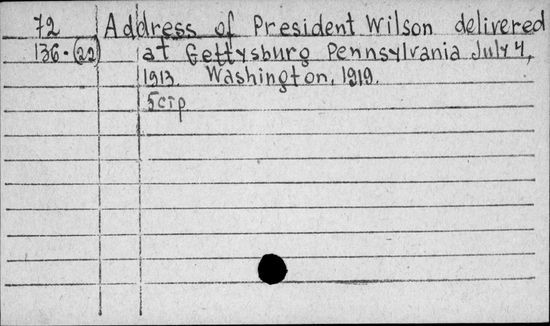 72 Address of President Wilson delivered
136-(22) at Gettysburg Pennsylvania July 4,
1913. Washington, 1919.
5cip